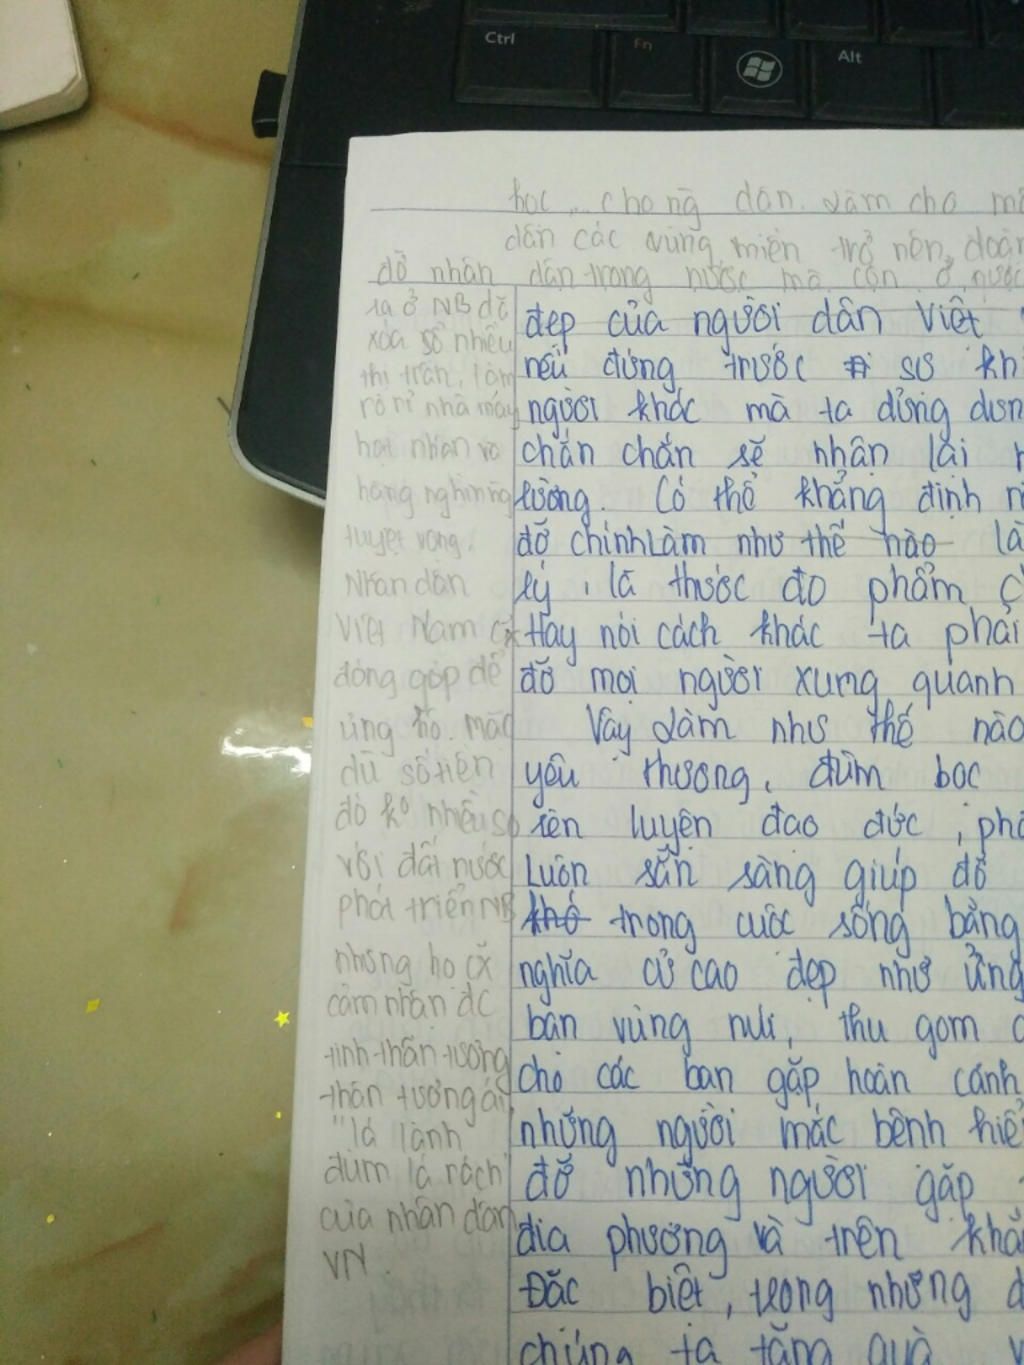 Ctrl
Fn
Alt
học ... chong dân. Làm cho
dân các vùng miền trở nên đoàn
đỡ nhân dân trong nước mà còn ở nước
ra ở NB đã
xóa sổ nhiều
thị trấn, làm
rò rỉ nhà máy
hạt nhân và
hàng nghìn ng
tuyệt vọng.
Nhân dân
Việt Nam cx
đóng góp để
ủng hộ. mặc
dù số tiền
đó ko nhiều so
với đất nước
phát triển NB
nhưng họ cx
cảm nhận đc
tinh thần tương
thân tương ái
"lá lành
đùm lá rách
của nhân dân
VN.
đẹp của người dân Việt
nếu đứng trước sự kh
người khác mà ta dửng dưn
chắn chắn sẽ nhận lại
lường. Có thể khẳng định
đỡ chính làm như thế nào là
lý, là thước đo phẩm
Hay nói cách khác ta phải
đỡ mọi người xung quanh
Vậy làm như thế nào
yêu thương, đùm bọc
rèn luyện đạo đức, phẩ
Luôn sẵn sàng giúp đỡ
khó trong cuộc sống bằng
nghĩa cử cao đẹp như ủng
bạn vùng núi, thu gom
cho các bạn gặp hoàn cảnh
những người mắc bệnh hiể
đỡ những người gặp
địa phương và trên khắ
Đặc biệt, trong những
chúng ta tặng quà